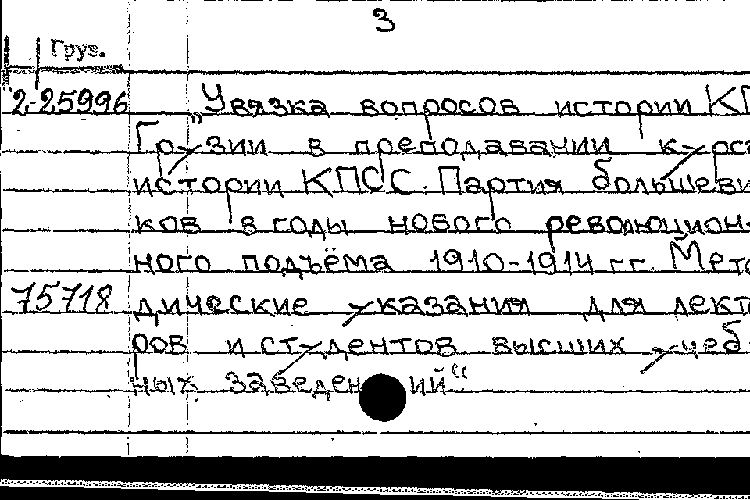 3
Груз.
2-25996 „Увязка вопросов истории КП
Грузии в преподавании курса
истории КПСС. Партия большеви
ков в годы нового революцион-
ного подъёма 1910-1914 гг. Мето
75718 дические указания для лекто
ров и студентов высших учеб
ных заведений“